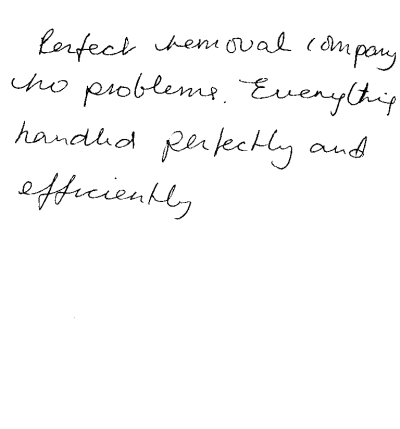 Perfect removal company
no problems. Everything
handled perfectly and
efficiently